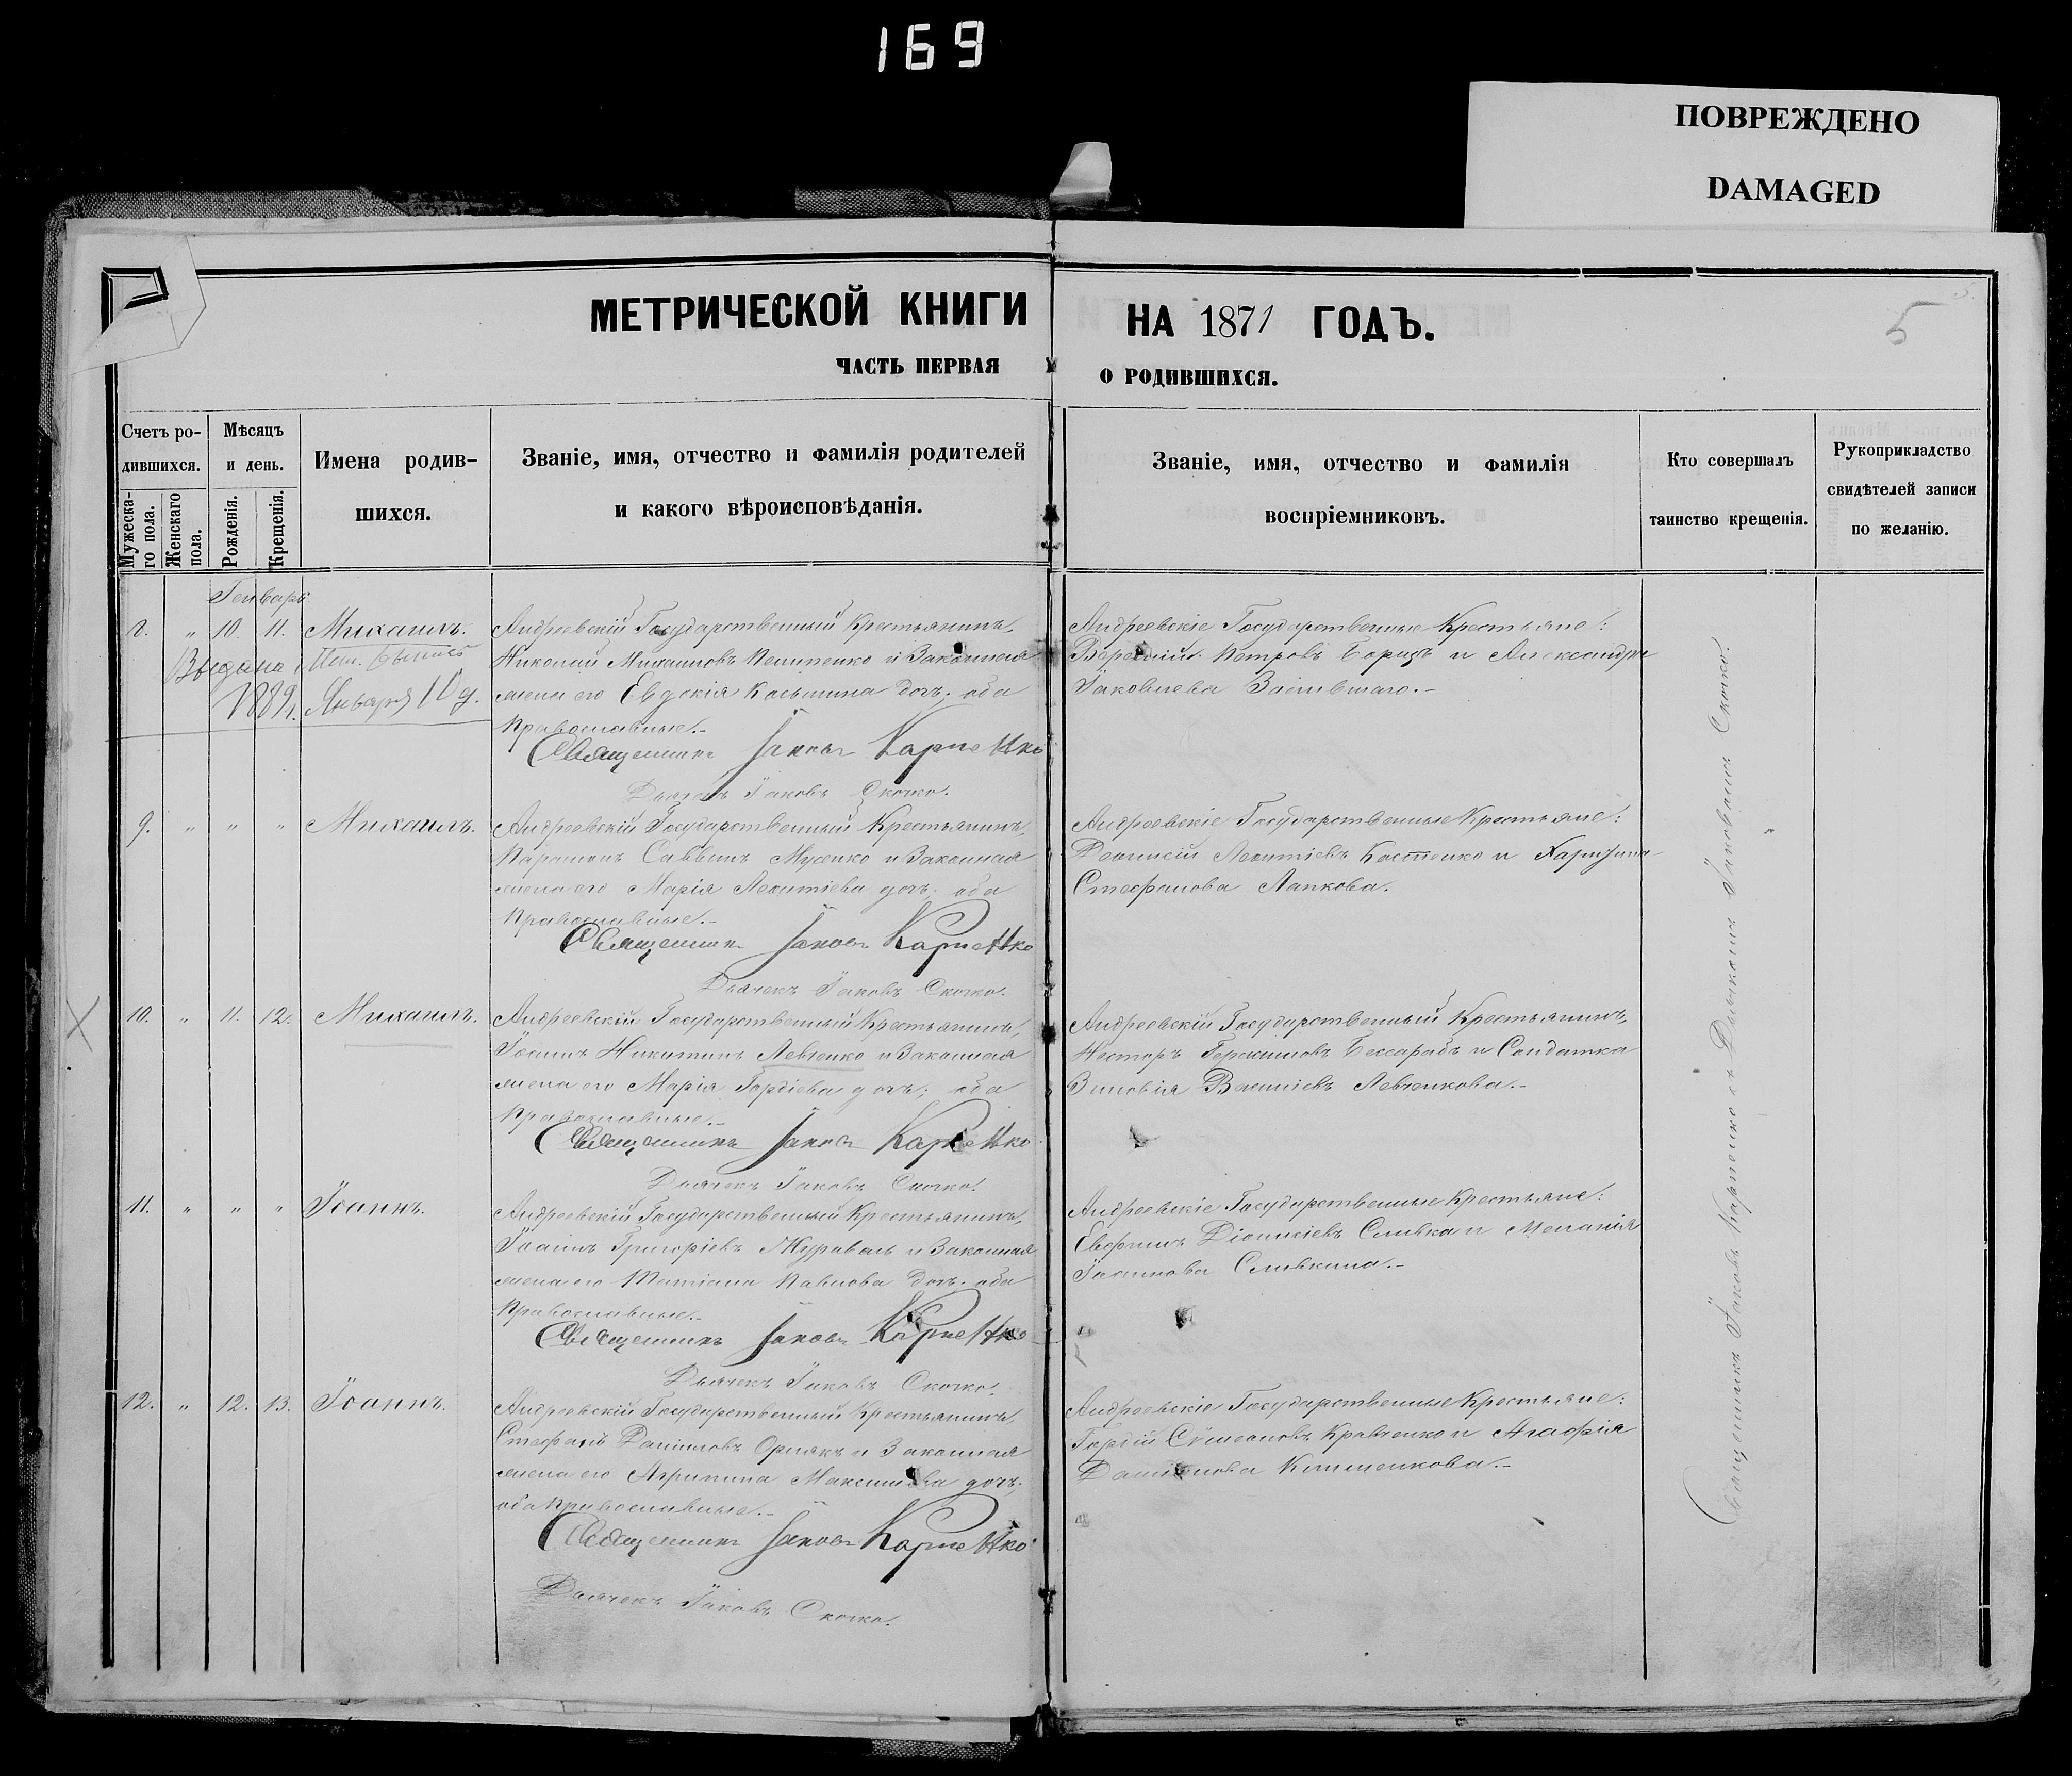 169
ПОВРЕЖДЕНО
DAMAGED
5
МЕТРИЧЕСКОЙ КНИГИ НА 1871 ГОДЪ.
ЧАСТЬ ПЕРВАЯ О РОДИВШИХСЯ.
Счетъ родившихся.
Мужескаго пола.
Женскаго пола.
Мѣсяцъ и день.
Рожденія.
Крещенія.
Имена родившихся.
Званіе, имя, отчество и фамилія родителей
и какого вѣроисповѣданія.
Званіе, имя, отчество и фамилія
воспріемниковъ.
Кто совершалъ
таинство крещенія.
Рукоприкладство
свидѣтелей записи
по желанію.
Генварь
8. " 10. 11. Михаилъ.
Выдана
1889. Января 10 д.
Андреевскій Государственный Крестьянинъ,
Николай Михаиловъ и Законная
жена его Евдокія Козьмина дочь; оба
Православные.-
Священникъ Іаковъ Карпенко
Дьячекъ Іаковъ Скочко.
Андреевскіе Государственные Крестьяне:
Петровъ и Александра
Іаковлева
9. " " " Михаилъ.
Андреевскій Государственный Крестьянинъ,
Парамонъ Саввинъ Мусенко и Законная
жена его Марія Леонтіева дочь; оба
Православные.-
Священникъ Іаковъ Карпенко
Дьячекъ Іаковъ Скочко.
Андреевскіе Государственные Крестьяне:
Деонисій Леонтіевъ Костенко и Харитина
Стефанова Лапкова.
10. " 11. 12. Михаилъ.
Андреевскій Государственный Крестьянинъ,
Іоаннъ Никитинъ Левченко и Законная
жена его Марія Гордіева дочь; оба
Православные.-
Священникъ Іаковъ Карпенко
Дьячекъ Іаковъ Скочко.
Андреевскій Государственный Крестьянинъ,
Несторъ Герасимовъ Бессарабъ и Солдатка
Зиновія Левченкова.-
11. " " " Іоаннъ.
Андреевскій Государственный Крестьянинъ,
Іоаннъ Григоріевъ Журавль и Законная
жена его Татіана Павлова дочь; оба
Православные.-
Священникъ Іаковъ Карпенко
Дьячекъ Іаковъ Скочко.
Андреевскіе Государственные Крестьяне:
Діонисіевъ Сливка и Меланія
Іоаннова Сливкина.-
12. " 12. 13. Іоаннъ.
Андреевскій Государственный Крестьянинъ,
Стефанъ Даниловъ и Законная
жена его Агрипина Максимова дочь;
оба Православные.-
Священникъ Іаковъ Карпенко
Дьячекъ Іаковъ Скочко.
Андреевскіе Государственные Крестьяне:
Гордій Сѵмеоновъ Кравченко и Агафія
Клименкова.-
Священникъ Іаковъ Карпенко съ Дьячкомъ Іаковомъ Скочко.